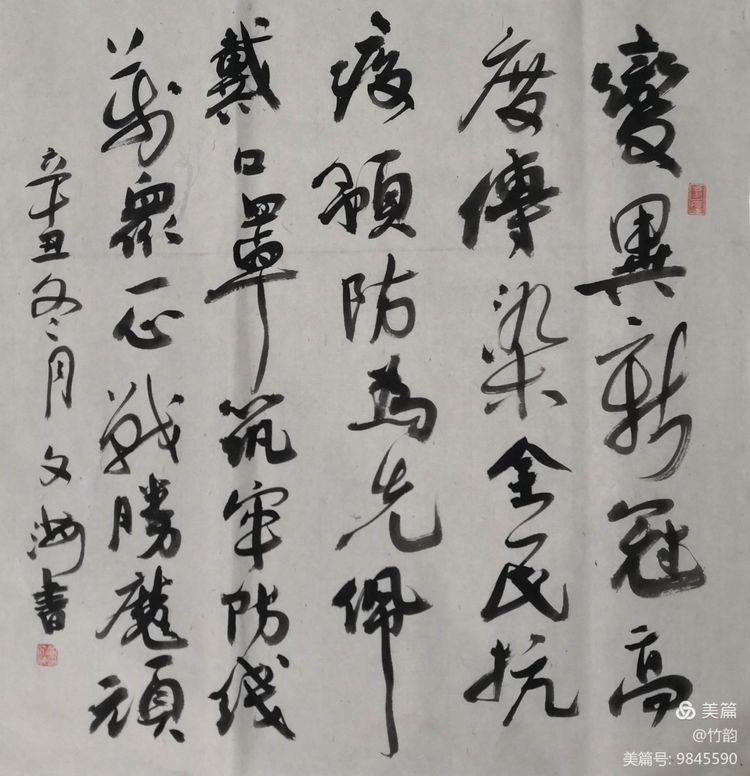 變異新冠高
度傳染全民抗
疫預防為先佩
戴口罩筑牢防线
萬衆一心戰勝魔頑
辛丑冬月文海書
美篇
@竹韵
美篇号: 9845590